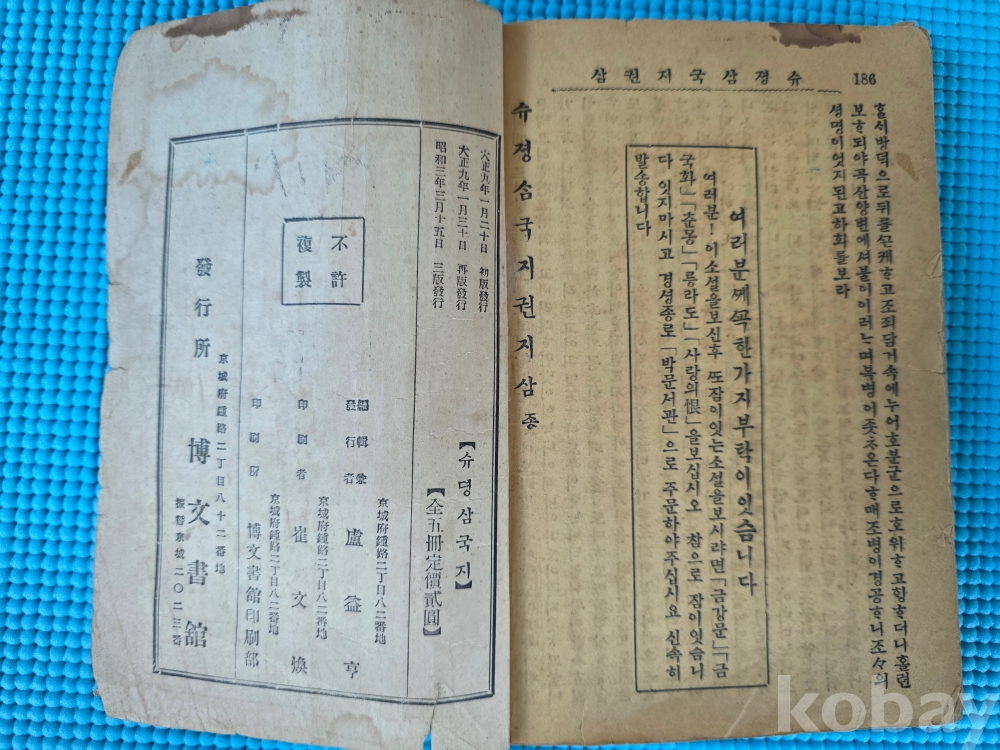 186
슈졍삼국지권삼
보ᄒᆞ되야곡산양변에셔불이이러ᄂᆞ며복병이좃ᄎᆞ온다ᄒᆞᄆᆡ조병이경공ᄒᆞ니조々의
셩명이엇지된고하회를보라
여러분ᄭᅦ꼭한가지부탁이잇슴니다
여러분!이소설을보신후 ᄯᅩ잠이잇는소설을보시랴면「금강문」「금
국화」「춘몽」「릉라도」「사랑의恨」을보십시오 참으로 잠이잇슴니
다 잇지마시고 경셩종로「박문서관」으로 주문하야주십시요 신속히
발송합니다
슈졍삼국지권지삼 종
大正九年一月二十日 初版發行
大正九年一月三十日 再版發行
昭和三年三月十五日 三版發行
不許
複製
【슈뎡삼국지】
【全五冊定價貳圓】
京城府鍾路二丁目八二番地
編輯兼
發行者 盧益亨
京城府鍾路二丁目八二番地
印刷者 崔文煥
京城府鍾路二丁目八二番地
印刷所 博文書館印刷部
京城府鍾路二丁目八十二番地
發行所 博文書館
振替京城二〇二三番
kobay